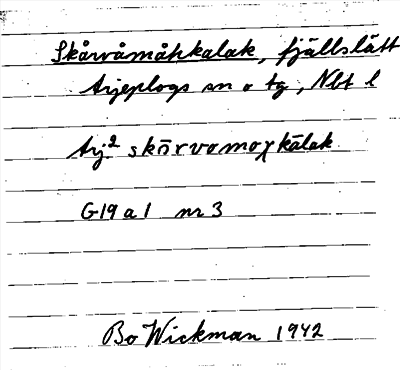 Skårvåmåhkalak, fjällslätt
Arjeplogs sn o tg, Nbt l
Arj² skårvamoχkālak
G19 a 1 nr 3
Bo Wickman 1942